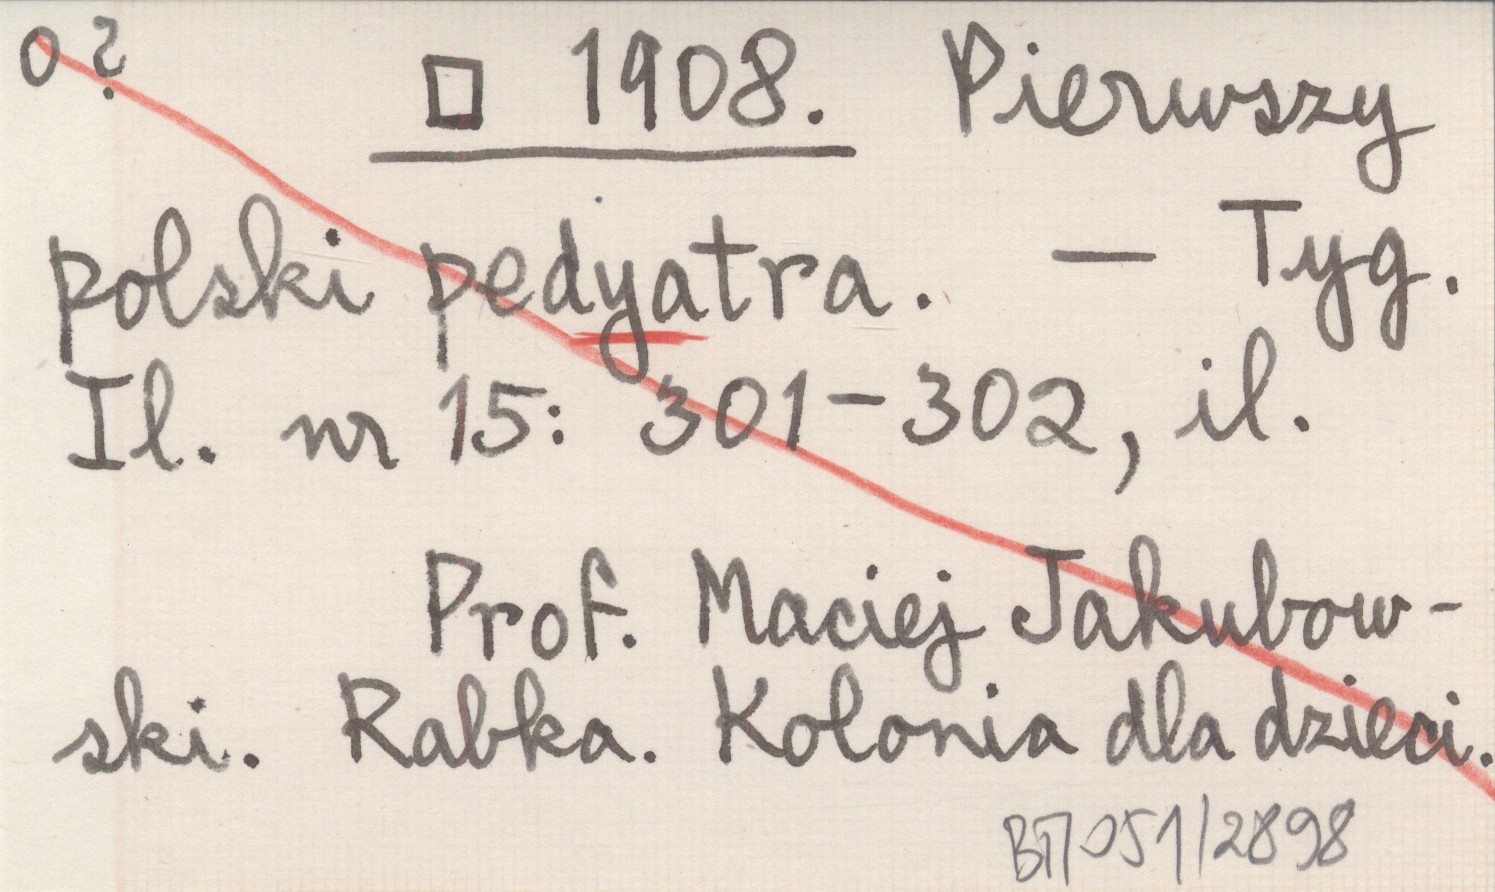 o ? □ 1908. Pierwszy
polski pedyatra. — Tyg.
Il. nr 15: 301-302, il.
Prof. Maciej Jakubow-
ski. Rabka. Kolonia dla dzieci.
BTT 051/2898